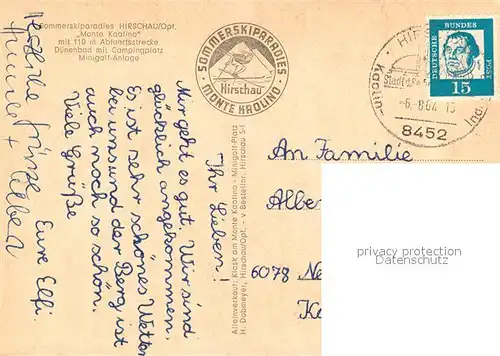 Sommerskiparadies HIRSCHAU/Opf.
„Monte Kaolino"
mit 110 m Abfahrtsstrecke
Dünenbad mit Campingplatz
Minigolf-Anlage
SOMMERSKIPARADIES
Hirschau
MONTE KAOLINO
Ihr Lieben!
Mir geht es gut. Wir sind
glücklich angekommen.
Es ist sehr schönes Wetter
bei uns und der Berg ist
auch noch so schön.
Viele Grüße
Eure Elfi.
Herzliche Grüsse
+ Alben
Alleinverkauf: Kiosk am Monte Kaolino - Minigolf-Platz
H. Dobmeyer, Hirschau/Opf. - v. Besteller: Hirschau 5-1
HIRS
Stadt des
Kaolin-
Ind.
-6.-8.64-15
8452
DEUTSCHE BUNDES POST
15
An Familie
Alber
6078 Ne
Ke
privacy protection
datenschutz